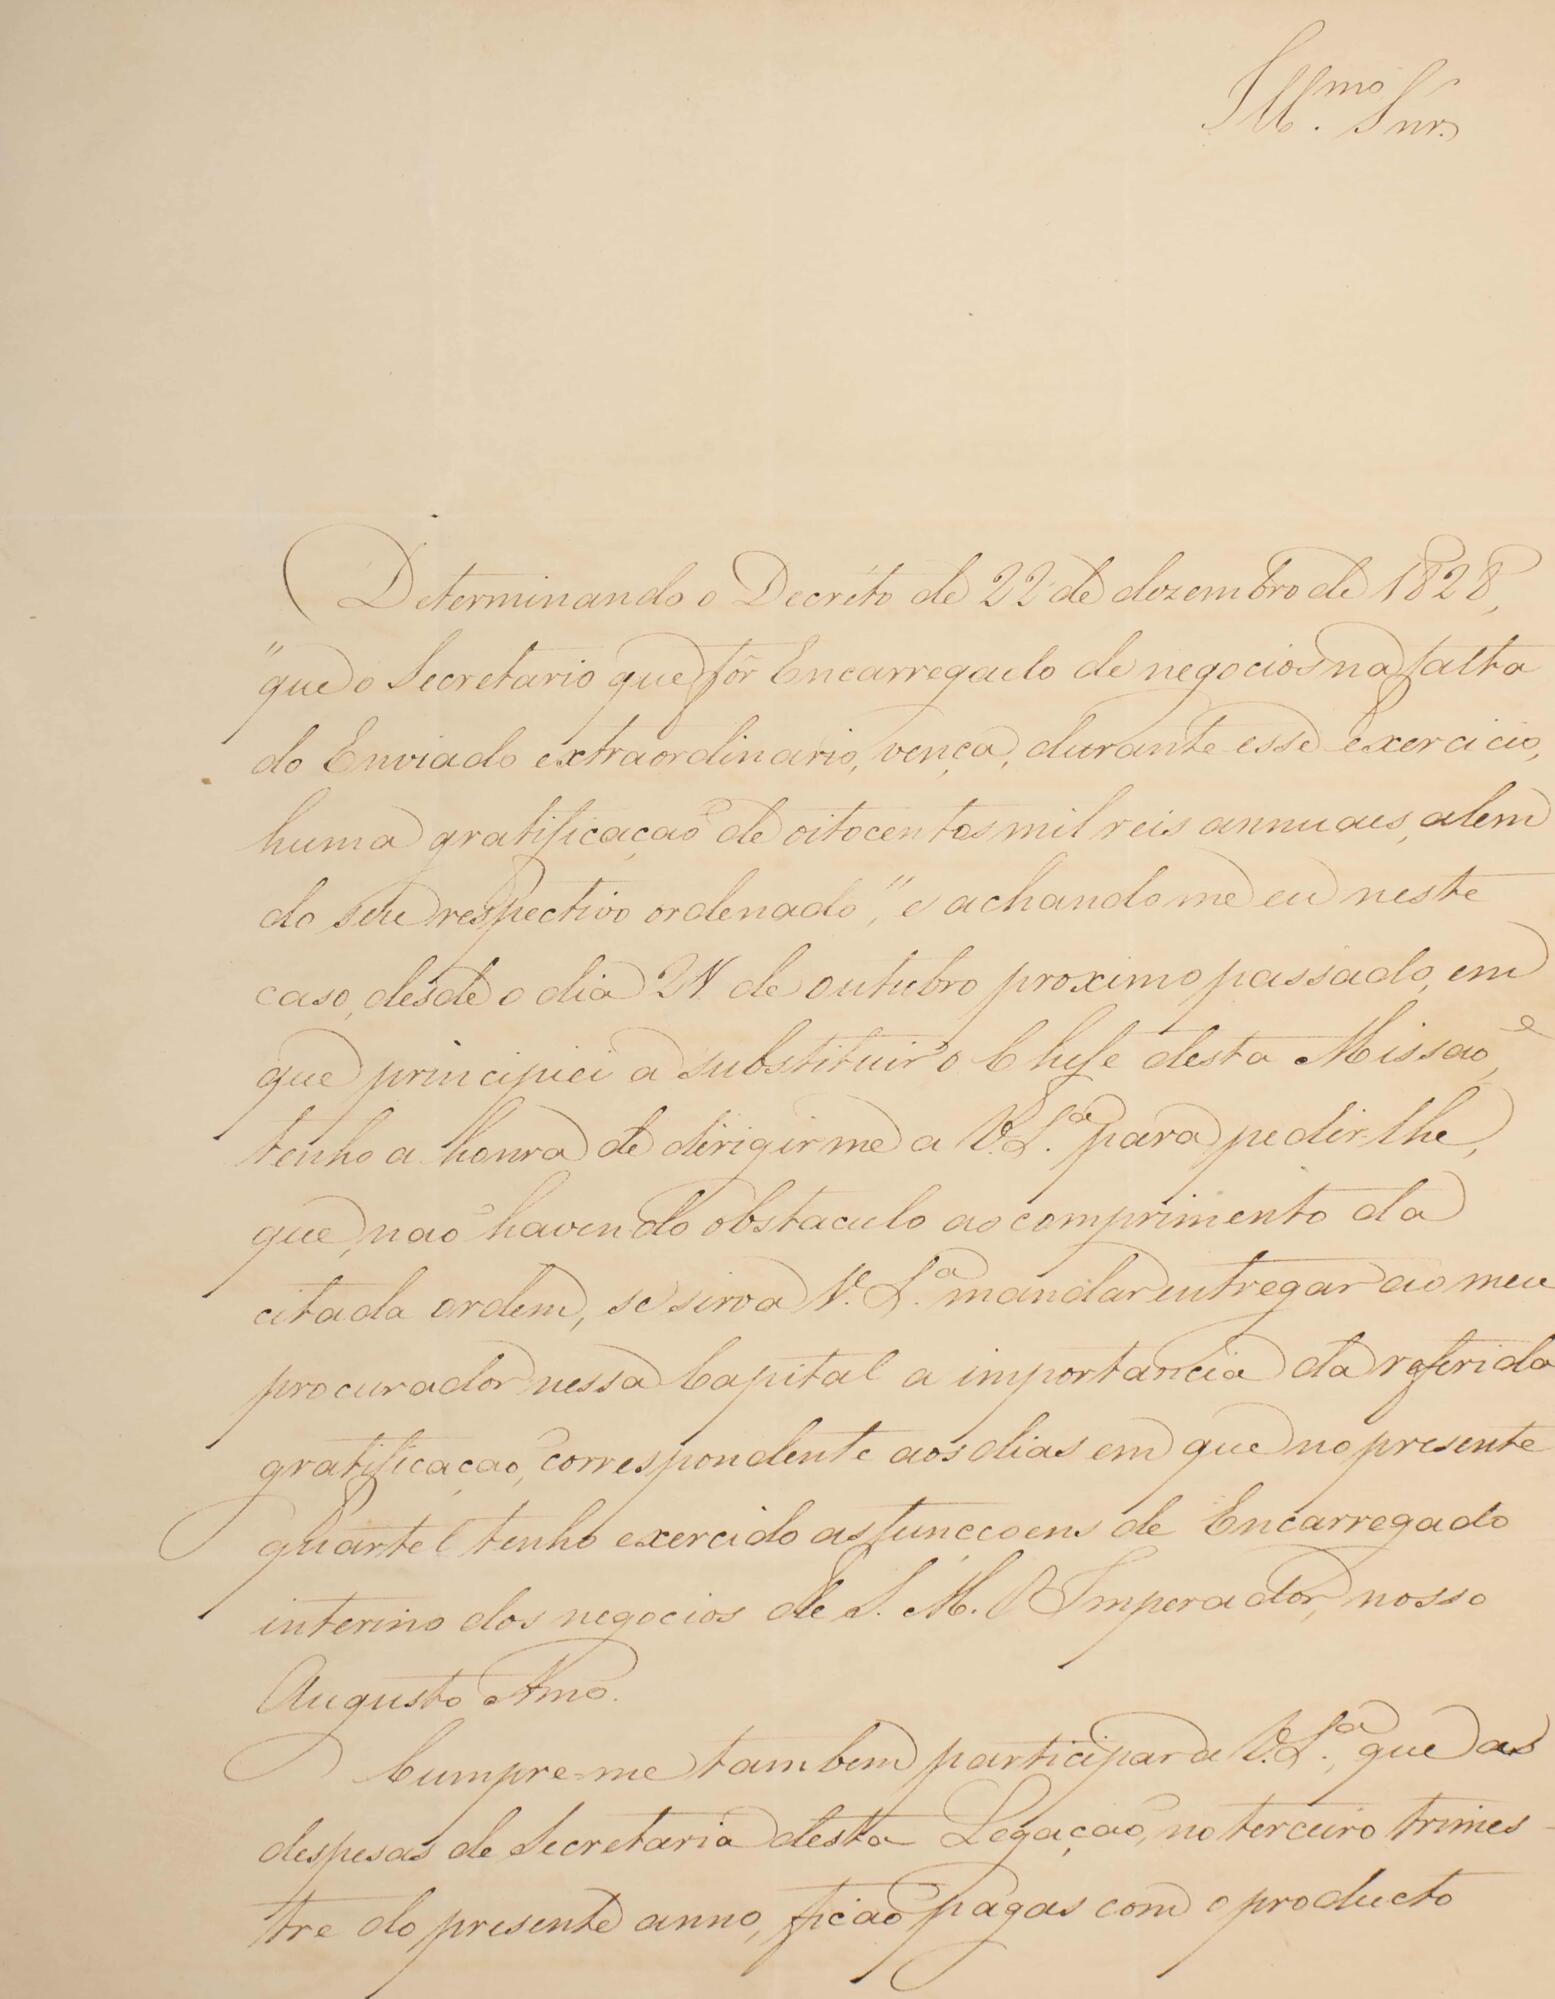 Ill.mo Snr.
Determinando o Decréto de 22 de dezembro de 1828,
"que o Secretario que fôr Encarregado de negocios na falta
do Enviado extraordinario, vença, durante esse exercicio,
huma gratificação de oitocentos mil reis annuaes, alem
do seu respectivo ordenado", e achando me eu neste
caso, desde o dia 24 de outubro proximo passado, em
que principiei a substituir o Chefe desta Missão,
tenho a honra de dirigir me a V. S.ª para pedir-lhe,
que, não havendo obstaculo ao comprimento da
citada ordem, se sirva V. S.ª mandar entregar ao meu
procurador nessa Capital a importancia da referida
gratificação, correspondente aos dias em que no presente
quartel tenho exercido as funccoens de Encarregado
interino dos negocios de S. M. O Imperador, nosso
Augusto Amo.
Cumpre-me tambem participar a V. S.ª, que as
despesas de Secretaria desta Legação, no terceiro trimes-
tre do presente anno, ficão pagas com o producto